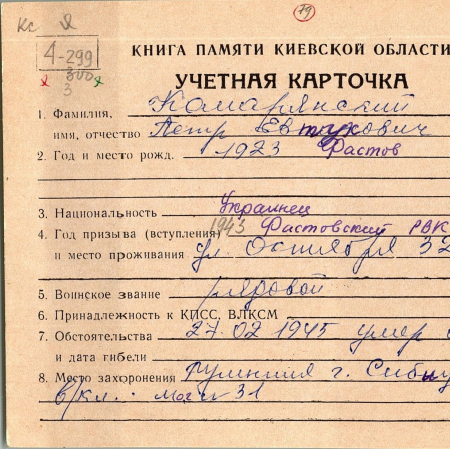 79
КС
4-299
300
3
КНИГА ПАМЯТИ КИЕВСКОЙ ОБЛАСТИ
УЧЕТНАЯ КАРТОЧКА
1. Фамилия, Комарянский
имя, отчество Петр Евтухович
2. Год и место рожд. 1923 Фастов
3. Национальность Украинец
4. Год призыва (вступления) 1943 Фастовский РВК
и место проживания ул. Октября 32
5. Воинское звание рядовой
6. Принадлежность к КПСС, ВЛКСМ
7. Обстоятельства 27.02 1945 умер
и дата гибели
8. Место захоронения Румыния г. Сибиу
в/кл. мог. 31